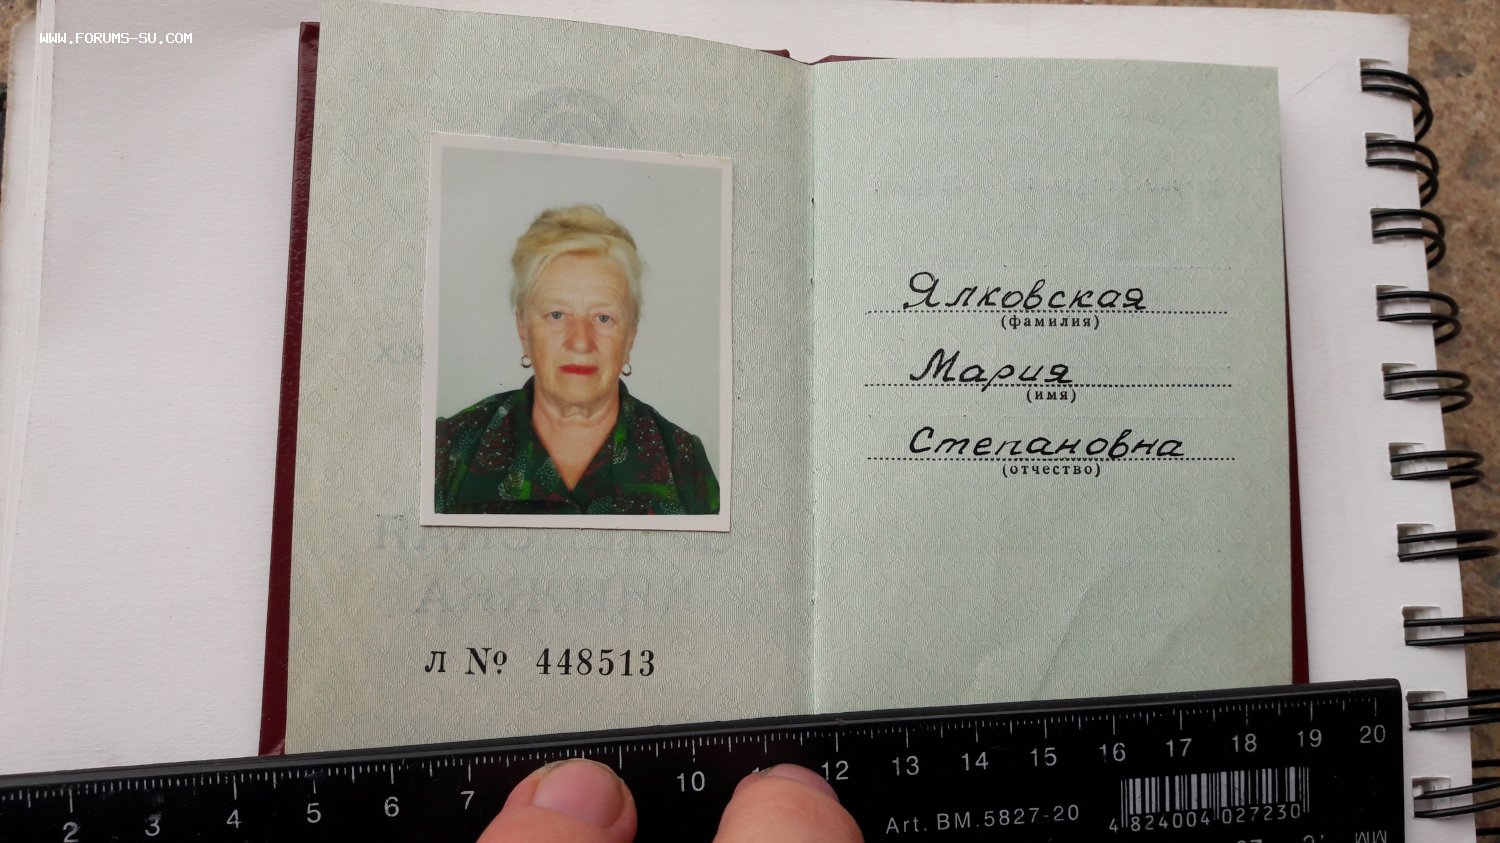 WWW.FORUMS-SU.COM
Л № 448513
Ялковская
(фамилия)
Мария
(имя)
Степановна
(отчество)
2 3 4 5 6 7 10 12 13 14 15 16 17 18 19 20
Art. BM.5827-20
4 824004 027230